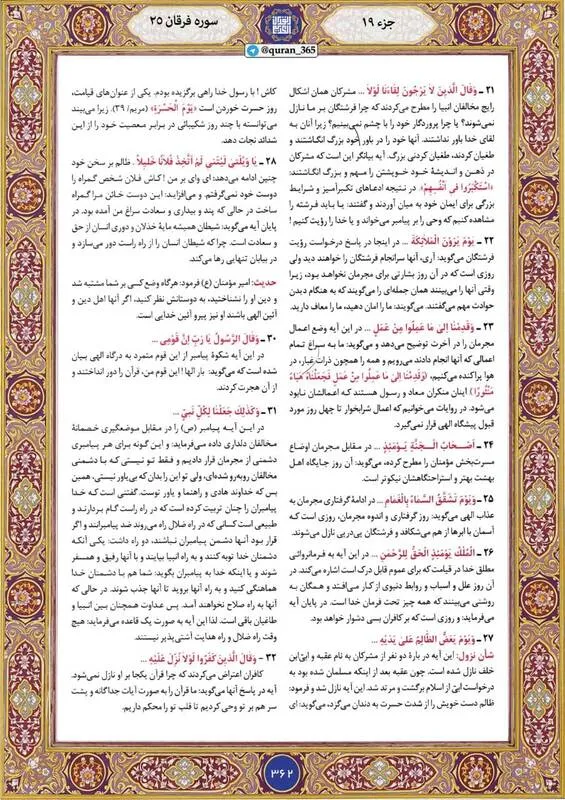 جزء ۱۹
سوره فرقان ۲۵
@quran_365
۲۱ ـ وَقَالَ الَّذِينَ لَا يَرْجُونَ لِقَاءَنَا لَوْلَا ... مشرکان همان اشکال
رایج مخالفان انبیا را مطرح می‌کردند که چرا فرشتگان بر ما نازل
نمی‌شوند؟ یا چرا پروردگار خود را با چشم نمی‌بینیم؟ زیرا آنان به
لقای خدا باور نداشتند. آنها خود را در باور خود بزرگ انگاشتند و
طغیان کردند، طغیان کردنی بزرگ. آیه بیانگر این است که مشرکان
در ذهن و اندیشهٔ خود خویشتن را مهم و بزرگ انگاشتند:
﴿اسْتَكْبَرُوا فِي أَنفُسِهِمْ﴾ در نتیجه ادعاهای تکبرآمیز و شرایط
بزرگی برای ایمان خود به میان آوردند و گفتند: یا باید فرشته را
مشاهده کنیم که وحی را بر پیامبر می‌خواند و یا خدا را رؤیت کنیم !
۲۲ ـ يَوْمَ يَرَوْنَ الْمَلَائِكَةَ ... در اینجا در پاسخ درخواست رؤیت
فرشتگان می‌گوید: آری، آنها سرانجام فرشتگان را خواهند دید ولی
روزی است که در آن روز بشارتی برای مجرمان نخواهد بود، زیرا
وقتی آنها را می‌بینند همان جمله‌ای را می‌گویند که به هنگام دیدن
حوادث مهم می‌گفتند. می‌گویند: ما را امان دهید، ما را معاف دارید.
۲۳ ـ وَقَدِمْنَا إِلَى مَا عَمِلُوا مِنْ عَمَلٍ ... در این آیه وضع اعمال
مجرمان را در آخرت توضیح می‌دهد و می‌گوید: ما به سراغ تمام
اعمالی که آنها انجام دادند می‌رویم و همه را همچون ذرات غبار، در
هوا پراکنده می‌کنیم، ﴿وَقَدِمْنَا إِلَى مَا عَمِلُوا مِنْ عَمَلٍ فَجَعَلْنَاهُ هَبَاءً
مَنْثُورًا﴾ اینان منکران معاد و رسول هستند که اعمالشان نابود
می‌شود. در روایات می‌خوانیم که اعمال شرابخوار تا چهل روز مورد
قبول پیشگاه الهی قرار نمی‌گیرد.
۲۴ ـ أَصْحَابُ الْجَنَّةِ يَوْمَئِذٍ ... در مقابل مجرمان اوضاع
مسرت‌بخش مؤمنان را مطرح کرده، می‌گوید: آن روز جایگاه اهل
بهشت بهتر و استراحتگاهشان نیکوتر است.
۲۵ ـ وَيَوْمَ تَشَقَّقُ السَّمَاءُ بِالْغَمَامِ ... در ادامهٔ گرفتاری مجرمان به
عذاب الهی می‌گوید: روز گرفتاری و اندوه مجرمان، روزی است که
آسمان با ابرها از هم می‌شکافد و فرشتگان پی‌درپی نازل می‌شوند.
۲۶ ـ الْمُلْكُ يَوْمَئِذٍ الْحَقُّ لِلرَّحْمَنِ ... در این آیه به فرمانروائی
مطلق خدا در قیامت که برای عموم قابل درک است اشاره می‌کند. در
آن روز علل و اسباب و روابط دنیوی از کار می‌افتد و همگان به
روشنی می‌بینند که همه چیز تحت فرمان خدا است. در پایان آیه
می‌فرماید: و روزی است که بر کافران بسی دشوار خواهد بود.
۲۷ ـ وَيَوْمَ يَعَضُّ الظَّالِمُ عَلَى يَدَيْهِ ...
شأن نزول: این آیه در بارهٔ دو نفر از مشرکان به نام عقبه و ابیّ‌ابن
خلف نازل شده است. چون عقبه بعد از اینکه مسلمان شده بود به
درخواست ابیّ از اسلام برگشت و مرتد شد. این آیه نازل شد و فرمود:
ظالم دست خویش را از شدت حسرت به دندان می‌گزد، می‌گوید: ای
کاش ! با رسول خدا راهی برگزیده بودم. یکی از عنوان‌های قیامت،
روز حسرت خوردن است ﴿يَوْمَ الْحَسْرَةِ﴾ (مریم/ ۳۹). زیرا می‌بیند
می‌توانسته با چند روز شکیبائی در برابر معصیت خود را از این
شدائد نجات دهد.
۲۸ ـ يَا وَيْلَتَى لَيْتَنِي لَمْ أَتَّخِذْ فُلَانًا خَلِيلًا. ظالم بر سخن خود
چنین ادامه می‌دهد: ای وای بر من ! کاش فلان شخص گمراه را
دوست خود نمی‌گرفتم. و می‌افزاید: این دوست خائن مرا گمراه
ساخت در حالی که پند و بیداری و سعادت سراغ من آمده بود. در
پایان آیه می‌گوید: شیطان همیشه مایهٔ خذلان و دوری انسان از حق
و سعادت است. چرا که شیطان انسان را از راه راست دور می‌سازد و
در بیابان تنهایی رها می‌کند.
حدیث: امیر مؤمنان (ع) فرمود: هرگاه وضع کسی بر شما مشتبه شد
و دین او را نشناختید، به دوستانش نظر کنید، اگر آنها اهل دین و
آئین الهی باشند او نیز پیرو آئین خدایی است.
۳۰ ـ وَقَالَ الرَّسُولُ يَا رَبِّ إِنَّ قَوْمِي ...
در این آیه شکوهٔ پیامبر از این قوم متمرد به درگاه الهی بیان
شده است که می‌گوید: بار الها ! این قوم من، قرآن را دور انداختند و
از آن هجرت کردند.
۳۱ ـ وَكَذَلِكَ جَعَلْنَا لِكُلِّ نَبِيٍّ ...
در این آیه پیامبر (ص) را در مقابل موضعگیری خصمانهٔ
مخالفان دلداری داده می‌فرماید: و این گونه برای هر پیامبری
دشمنی از مجرمان قرار دادیم و فقط تو نیستی که با دشمنی
مخالفان روبه‌رو شده‌ای، ولی تو این را بدان که بی‌یاور نیستی. همین
بس که خداوند هادی و راهنما و یاور توست. گفتنی است که خدا
پیامبران را چنان تربیت کرده است که در راه راست گام بردارند و
طبیعی است کسانی که در راه ضلال می‌روند ضد پیامبرانند و اگر
قرار بود آنها دشمن پیامبران نباشند، دو راه داشت: یکی آنکه
دشمنان خدا توبه کنند و به راه انبیا بیایند و با آنها رفیق و همسفر
شوند و یا اینکه خدا به پیامبران بگوید: شما هم با دشمنان خدا
هماهنگی کنید و به راه آنها بروید تا آنها جذب شوند. در حالی که
آنها به راه صلاح نخواهند آمد. پس عداوت همچنان بین انبیا و
طاغیان باقی است. لذا این آیه به صورت یک قاعده می‌فرماید: هیچ
وقت راه ضلال و راه هدایت آشتی‌پذیر نیستند.
۳۲ ـ وَقَالَ الَّذِينَ كَفَرُوا لَوْلَا نُزِّلَ عَلَيْهِ ...
کافران اعتراض می‌کردند که چرا قرآن یکجا بر او نازل نمی‌شود.
آیه در پاسخ آنها می‌گوید: ما قرآن را به صورت آیات جداگانه و پشت
سر هم بر تو وحی کردیم تا قلب تو را محکم داریم.
۳۶۲